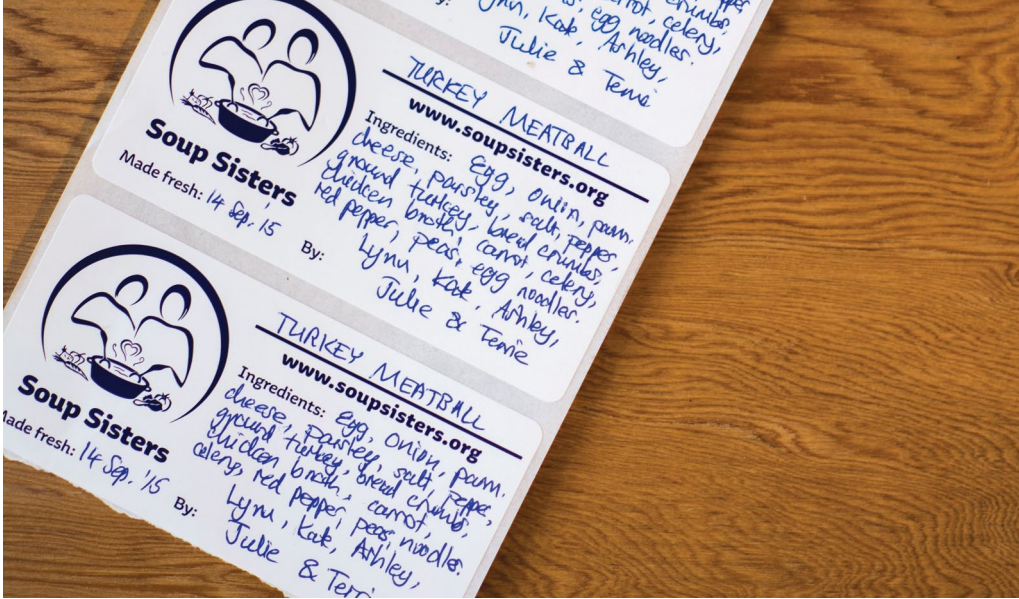 pepper
crumbs,
carrot, celery,
egg noodles.
Kate, Ashley,
Julie & Terrie
TURKEY MEATBALL
www.soupsisters.org
Ingredients: Egg, onion, parm.
cheese, parsley, salt, pepper,
ground turkey, bread crumbs,
chicken broth, carrot, celery,
red pepper, peas, egg noodles.
By: Lynn, Kate, Ashley,
Julie & Terrie
Soup Sisters
Made fresh: 14 Sep. '15
TURKEY MEATBALL
www.soupsisters.org
Ingredients: Egg, onion, parm.
cheese, parsley, salt, pepper,
ground turkey, bread crumbs,
chicken broth, carrot,
celery, red pepper, peas, noodles.
By: Lynn, Kate, Ashley,
Julie & Terri
Soup Sisters
Made fresh: 14 Sep. '15